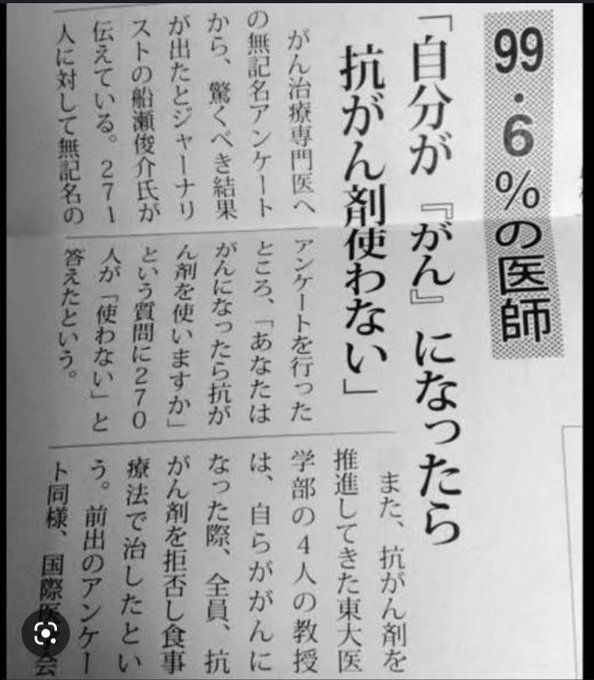 99・6％の医師
「自分が『がん』になったら
抗がん剤使わない」
がん治療専門医へ
の無記名アンケート
から、驚くべき結果
が出たとジャーナリ
ストの船瀬俊介氏が
伝えている。271
人に対して無記名の
アンケートを行った
ところ、「あなたは
がんになったら抗が
ん剤を使いますか」
という質問に270
人が「使わない」と
答えたという。
また、抗がん剤を
推進してきた東大医
学部の4人の教授
は、自らががんに
なった際、全員、抗
がん剤を拒否し食事
療法で治したとい
う。前出のアンケー
ト同様、国際医